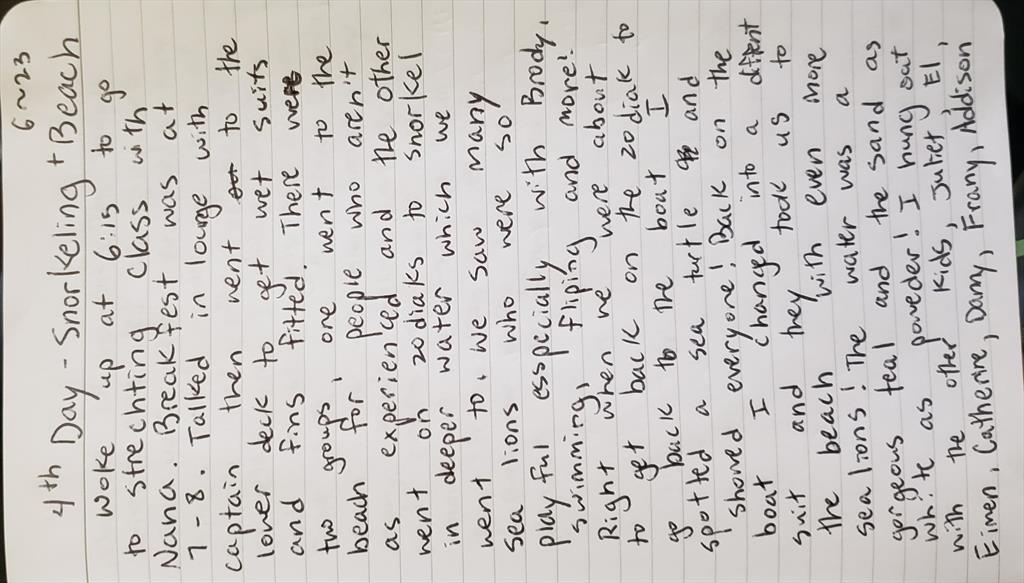 6~23
4th Day - Snorkeling + Beach
Woke up at 6:15 to go
to strechting class with
Nana. Breakfest was at
7-8. Talked in lounge with
captain then went to the
lower deck to get wet suits
and fins fitted. There were
two groups, one went to the
beach for people who aren't
as experienced and the other
went on zodiaks to snorkel
in deeper water which we
went to. We saw many
sea lions who were so
playful esspecially with Brody,
swimming, fliping and more!
Right when we were about
to get back on the zodiak to
go back to the boat I
spotted a sea turtle and
showed everyone! Back on the
boat I changed into a difent
suit and they took us to
the beach with even more
sea lions! The water was a
gorgeous teal and the sand as
white as poweder! I hung out
with the other kids, Juliet, El,
Eimen, Catherine, Dany, Frany, Addison